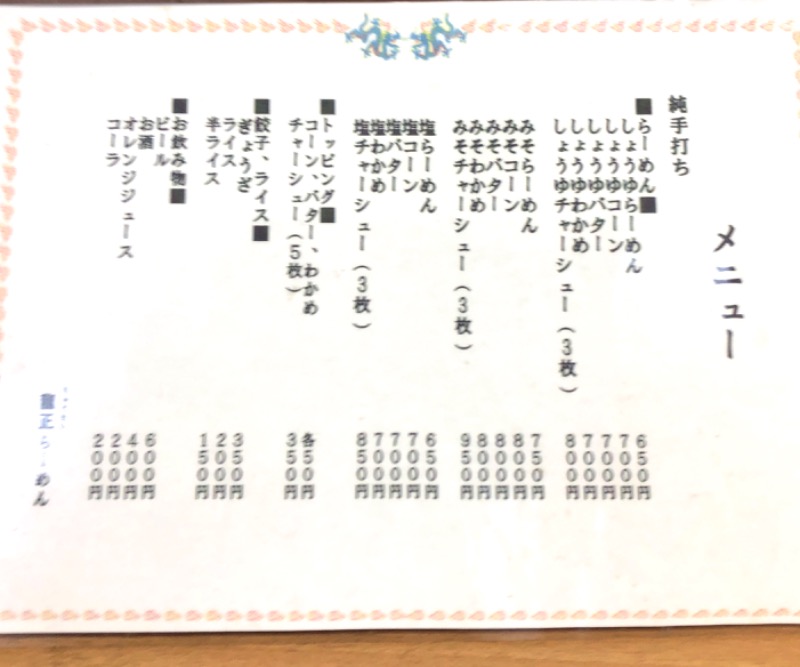 メニュー
純手打ち
■らーめん■
しょうゆらーめん 650円
しょうゆコーン 700円
しょうゆバター 700円
しょうゆわかめ 700円
しょうゆチャーシュー(3枚) 800円
みそらーめん 750円
みそコーン 800円
みそバター 800円
みそわかめ 800円
みそチャーシュー(3枚) 950円
塩らーめん 650円
塩コーン 700円
塩バター 700円
塩わかめ 700円
塩チャーシュー(3枚) 850円
■トッピング■
コーン、バター、わかめ 各50円
チャーシュー(5枚) 350円
■餃子、ライス■
ぎょうざ 350円
ライス 200円
半ライス 150円
■お飲み物■
ビール 600円
お酒 400円
オレンジジュース 200円
コーラ 200円
正らーめん